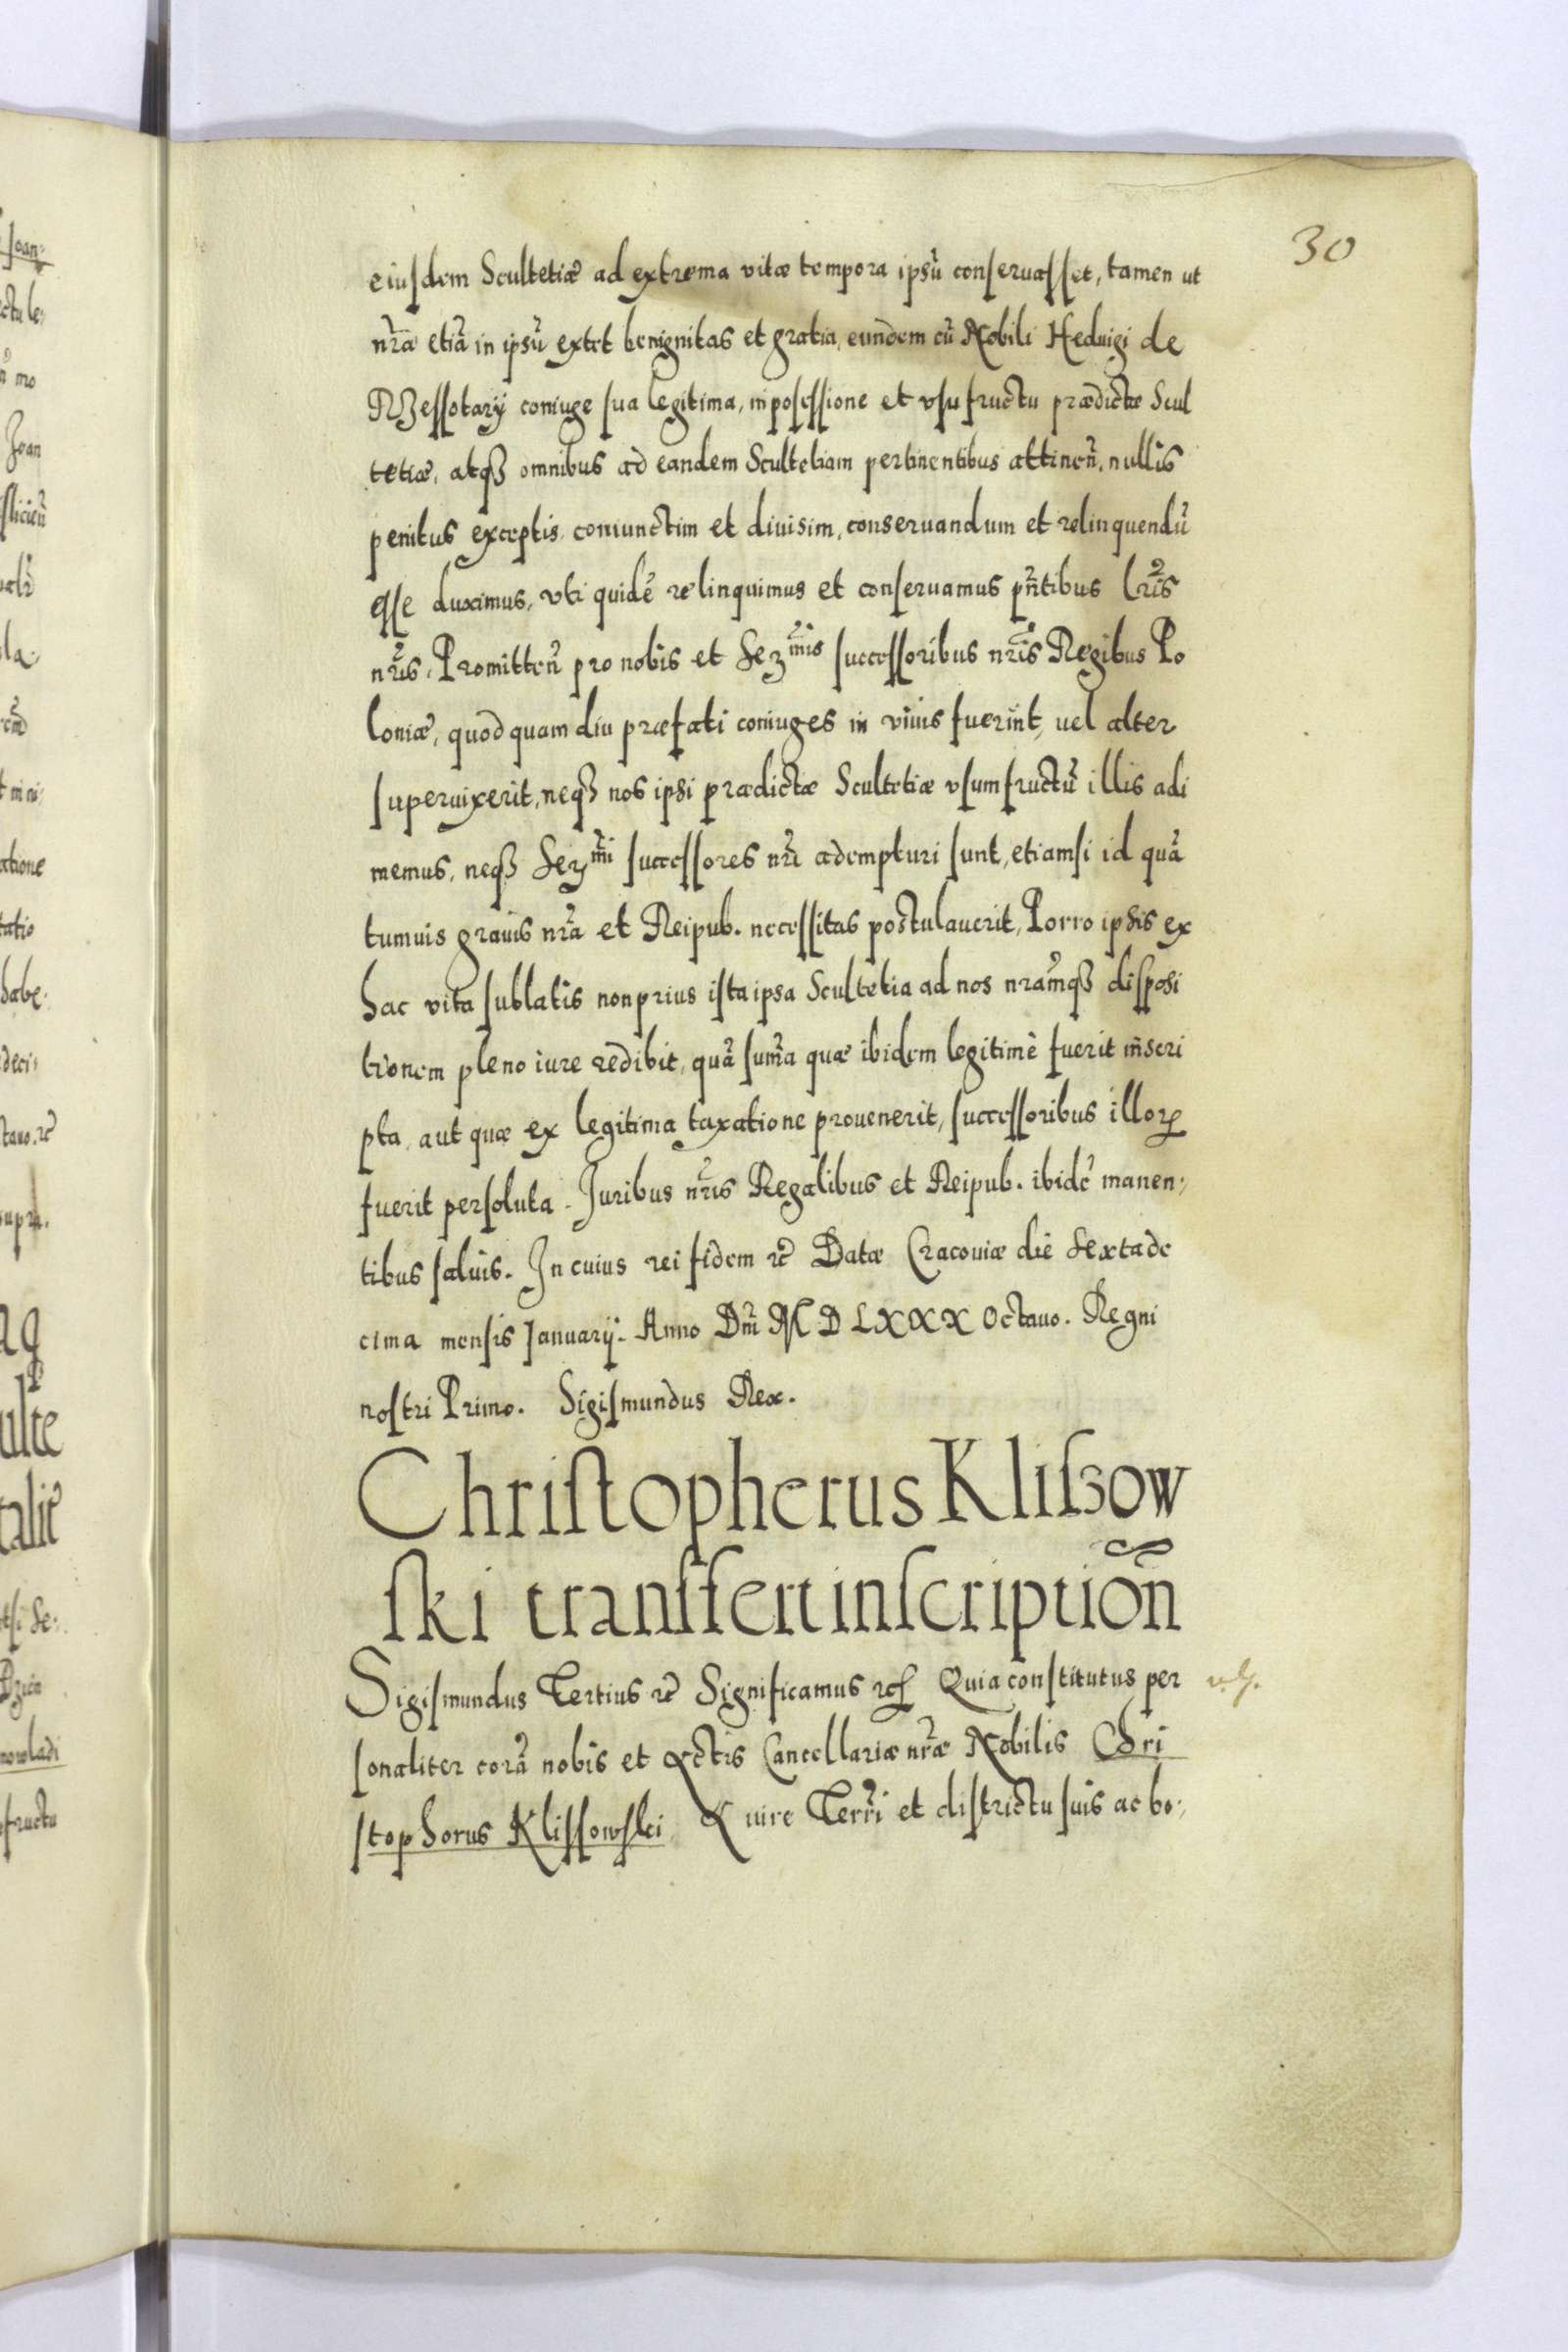 30
eiusdem Scultetiæ ad extrema vitæ tempora ipsũ conseruasset, tamen ut
nr̃a etiã in ipsũ extet benignitas et gratia, eundem cũ Nobili Heduigi de
Rzessotary coniuge sua legitima, in possessione et vsufructu prædictæ Scul
tetiæ, atqȝ omnibus ad eandem Scultetiam pertinentibus attineñ, nullis
penitus exceptis, coniunctim et diuisim, conseruandum et relinquendũ
esse duximus, vti quidẽ relinquimus et conseruamus pñtibus lr̃is
nr̃is. Promitteñ pro nobis et Serm̃is successoribus nr̃is Regibus Po
loniæ, quod quam diu præfati coniuges in viuis fuerint, uel alter
superuixerit, neqȝ nos ipsi prædictæ Scultetiæ vsumfructũ illis adi
memus, neqȝ Serm̃i successores nr̃i adempturi sunt, etiamsi id quã
tumuis grauis nr̃a et Reipub. necessitas postulauerit, Porro ipsis ex
hac vita sublatis non prius ista ipsa Scultetia ad nos nr̃amqȝ disposi
tionem pleno iure redibit, quã sum̃a quæ ibidem legitimè fuerit inscri
pta, aut quæ ex legitima taxatione prouenerit, successoribus illoꝝ
fuerit persoluta. Juribus nr̃is Regalibus et Reipub. ibidẽ manen:
tibus saluis. In cuius rei fidem ꝛc̃ Datæ Cracouiæ die sextade
cima mensis Januarij. Anno Dñi M D LXXX Octauo. Regni
nostri Primo. Sigismundus Rex.
Christopherus Kliszow
ski transfert inscription̄
Sigismundus Tertius ꝛc̃ Significamus Quia constitutus per
sonaliter corã nobis et Actis Cancellariæ nr̃æ Nobilis Chri
stophorus Klissowski, A uire Terr̃i et districtu suis ac bo: